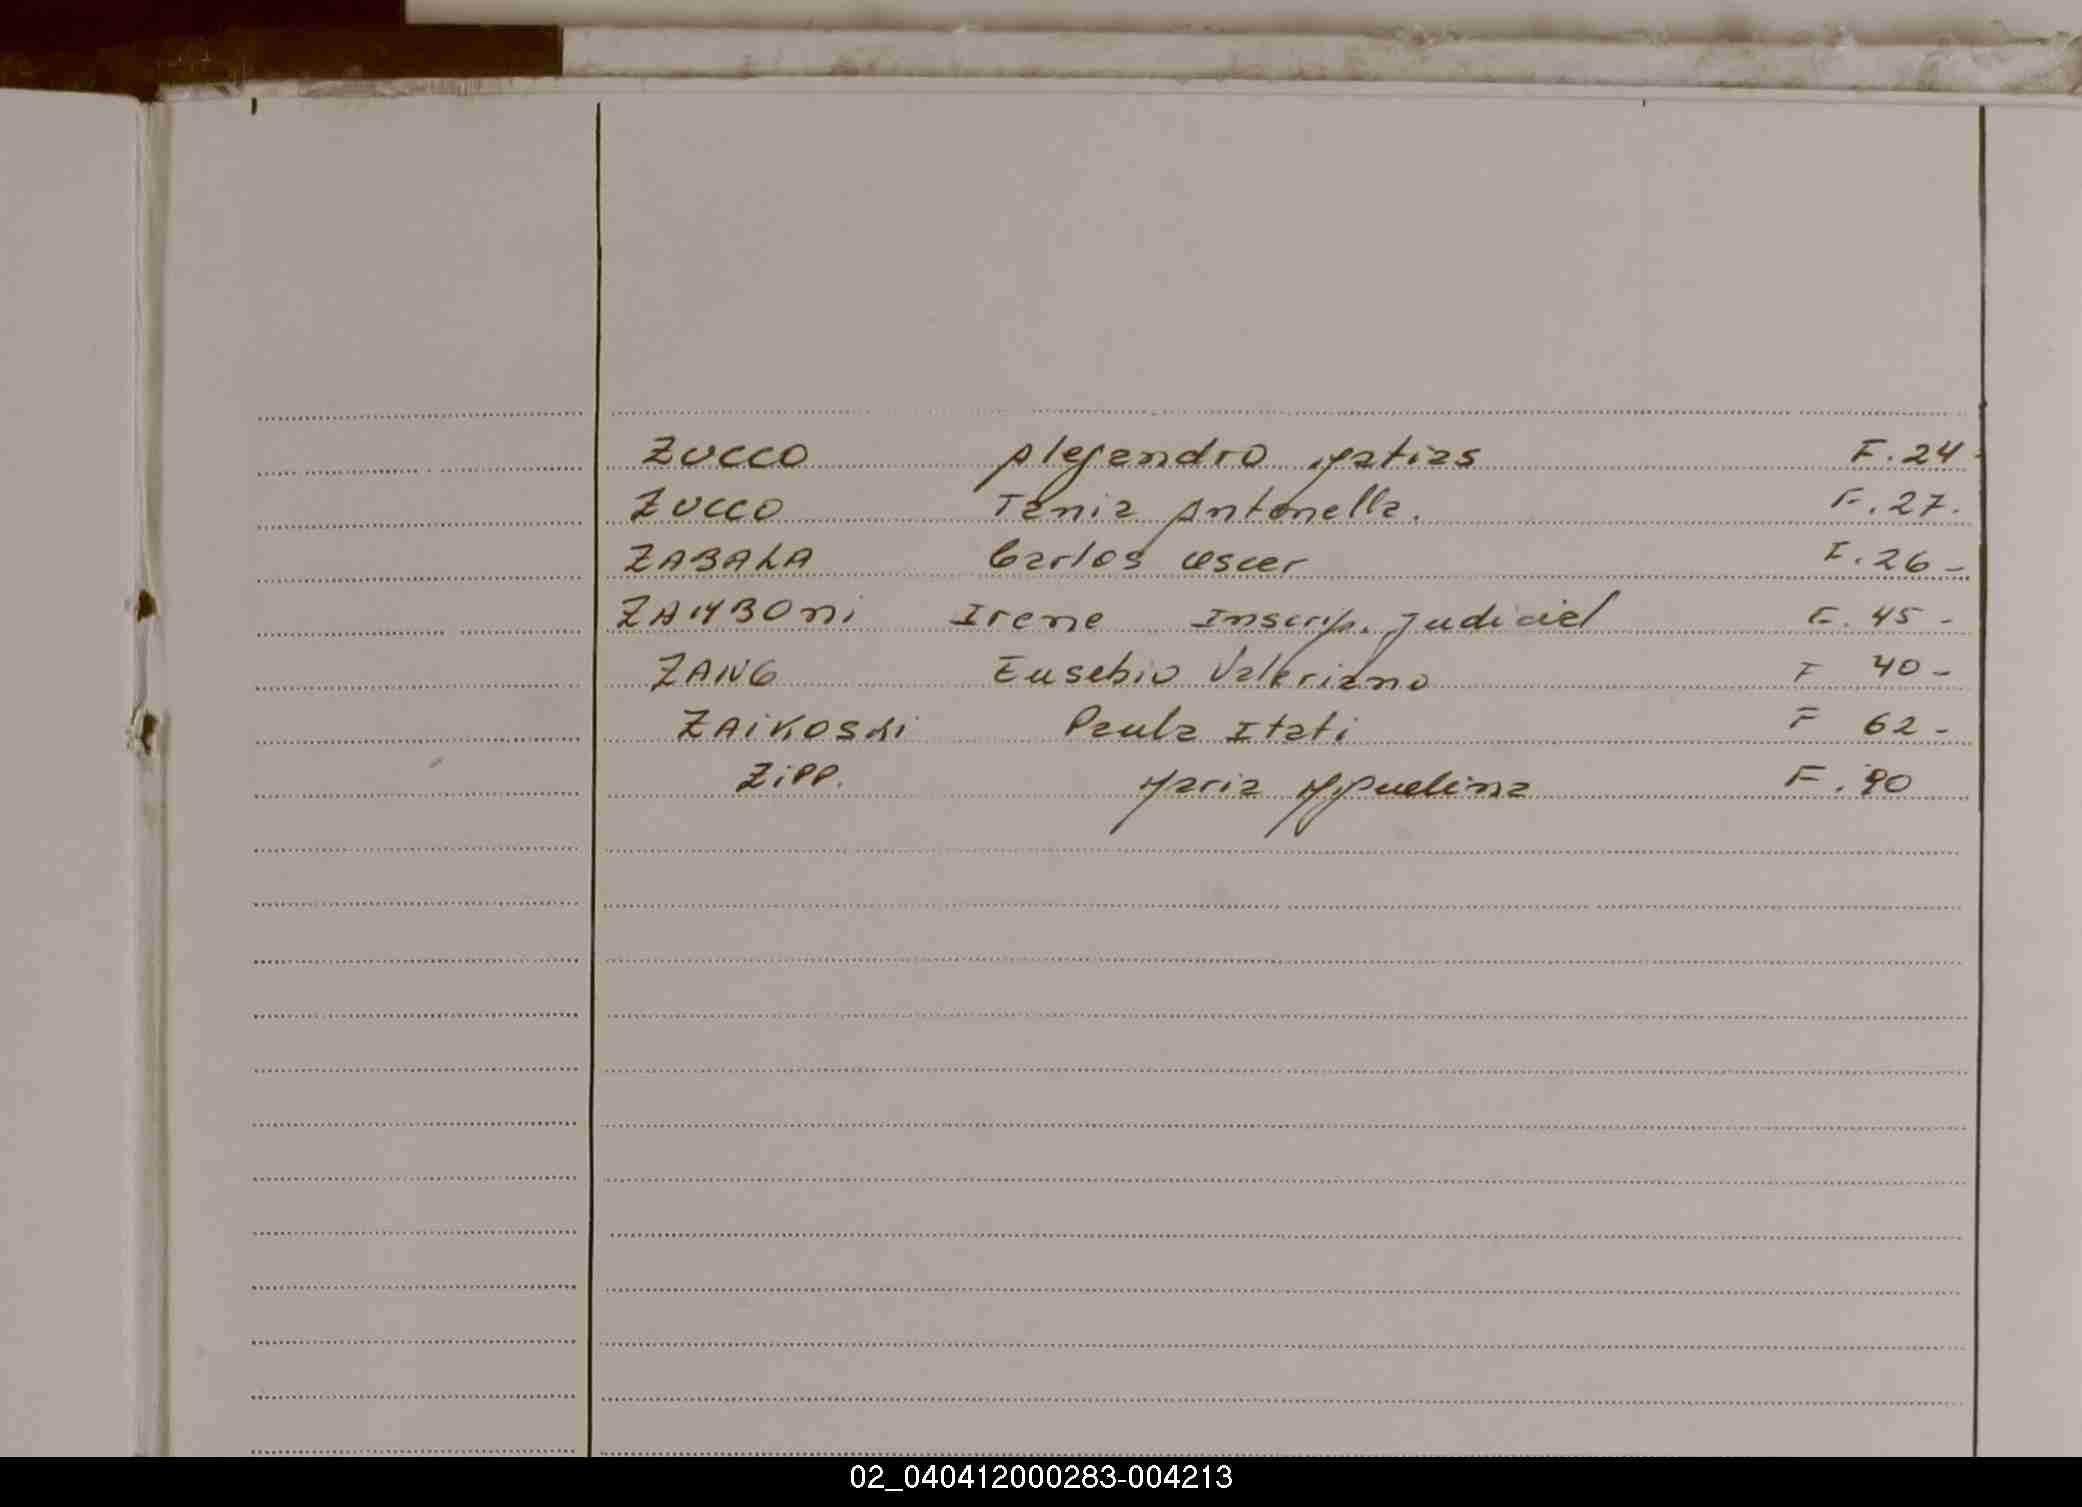 ZUCCO Alejandro Matias F. 24
ZUCCO Tania Antonella. F. 27.
ZABALA Carlos Oscar F. 26-
ZAMBONi Irene Inscrip. Judicial F. 45-
ZANG Eusebio Valeriano F 40-
ZAiKOSKi Paula Itati F 62-
ZiPP. Maria F. 90
02_040412000283-004213